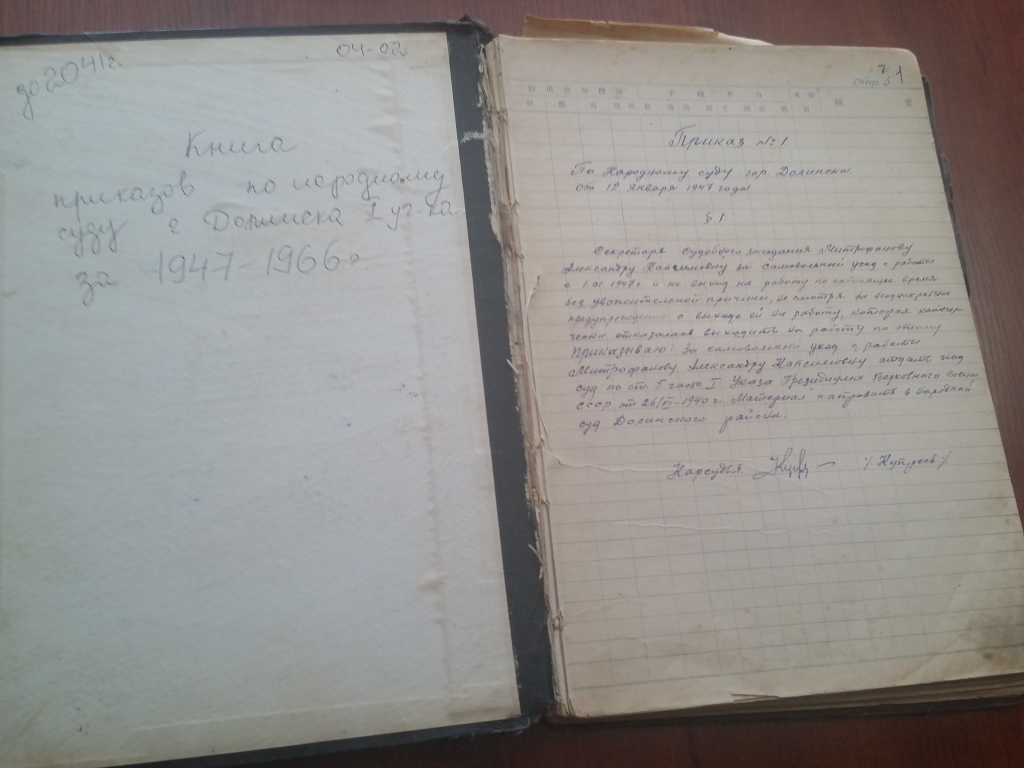 до 2041г.
04-02
Книга
приказов по народному
суду г Долинска I уч-ка
за 1947-1966г
стр. 1
Приказ № 1.
По Народному суду гор. Долинска
от 12 января 1947 года
§ 1
Секретаря судебного заседания Митрофанову
Александру Максимовну за самовольный уход с работы
с 1.01.1947г. и не выход на работу по настоящее время
без уважительной причины, не смотря на неоднократное
предупреждение о выходе ей на работу, которая категори-
чески отказалась выходить на работу по этому
Приказываю: За самовольный уход с работы
Митрофанову Александру Максимовну отдать под
суд по ст. 5 часть I Указа Президиума Верховного Совета
СССР от 26/VI-1940г. Материал направить в Народный
суд Долинского района.
Нарсудья: /Купреев/